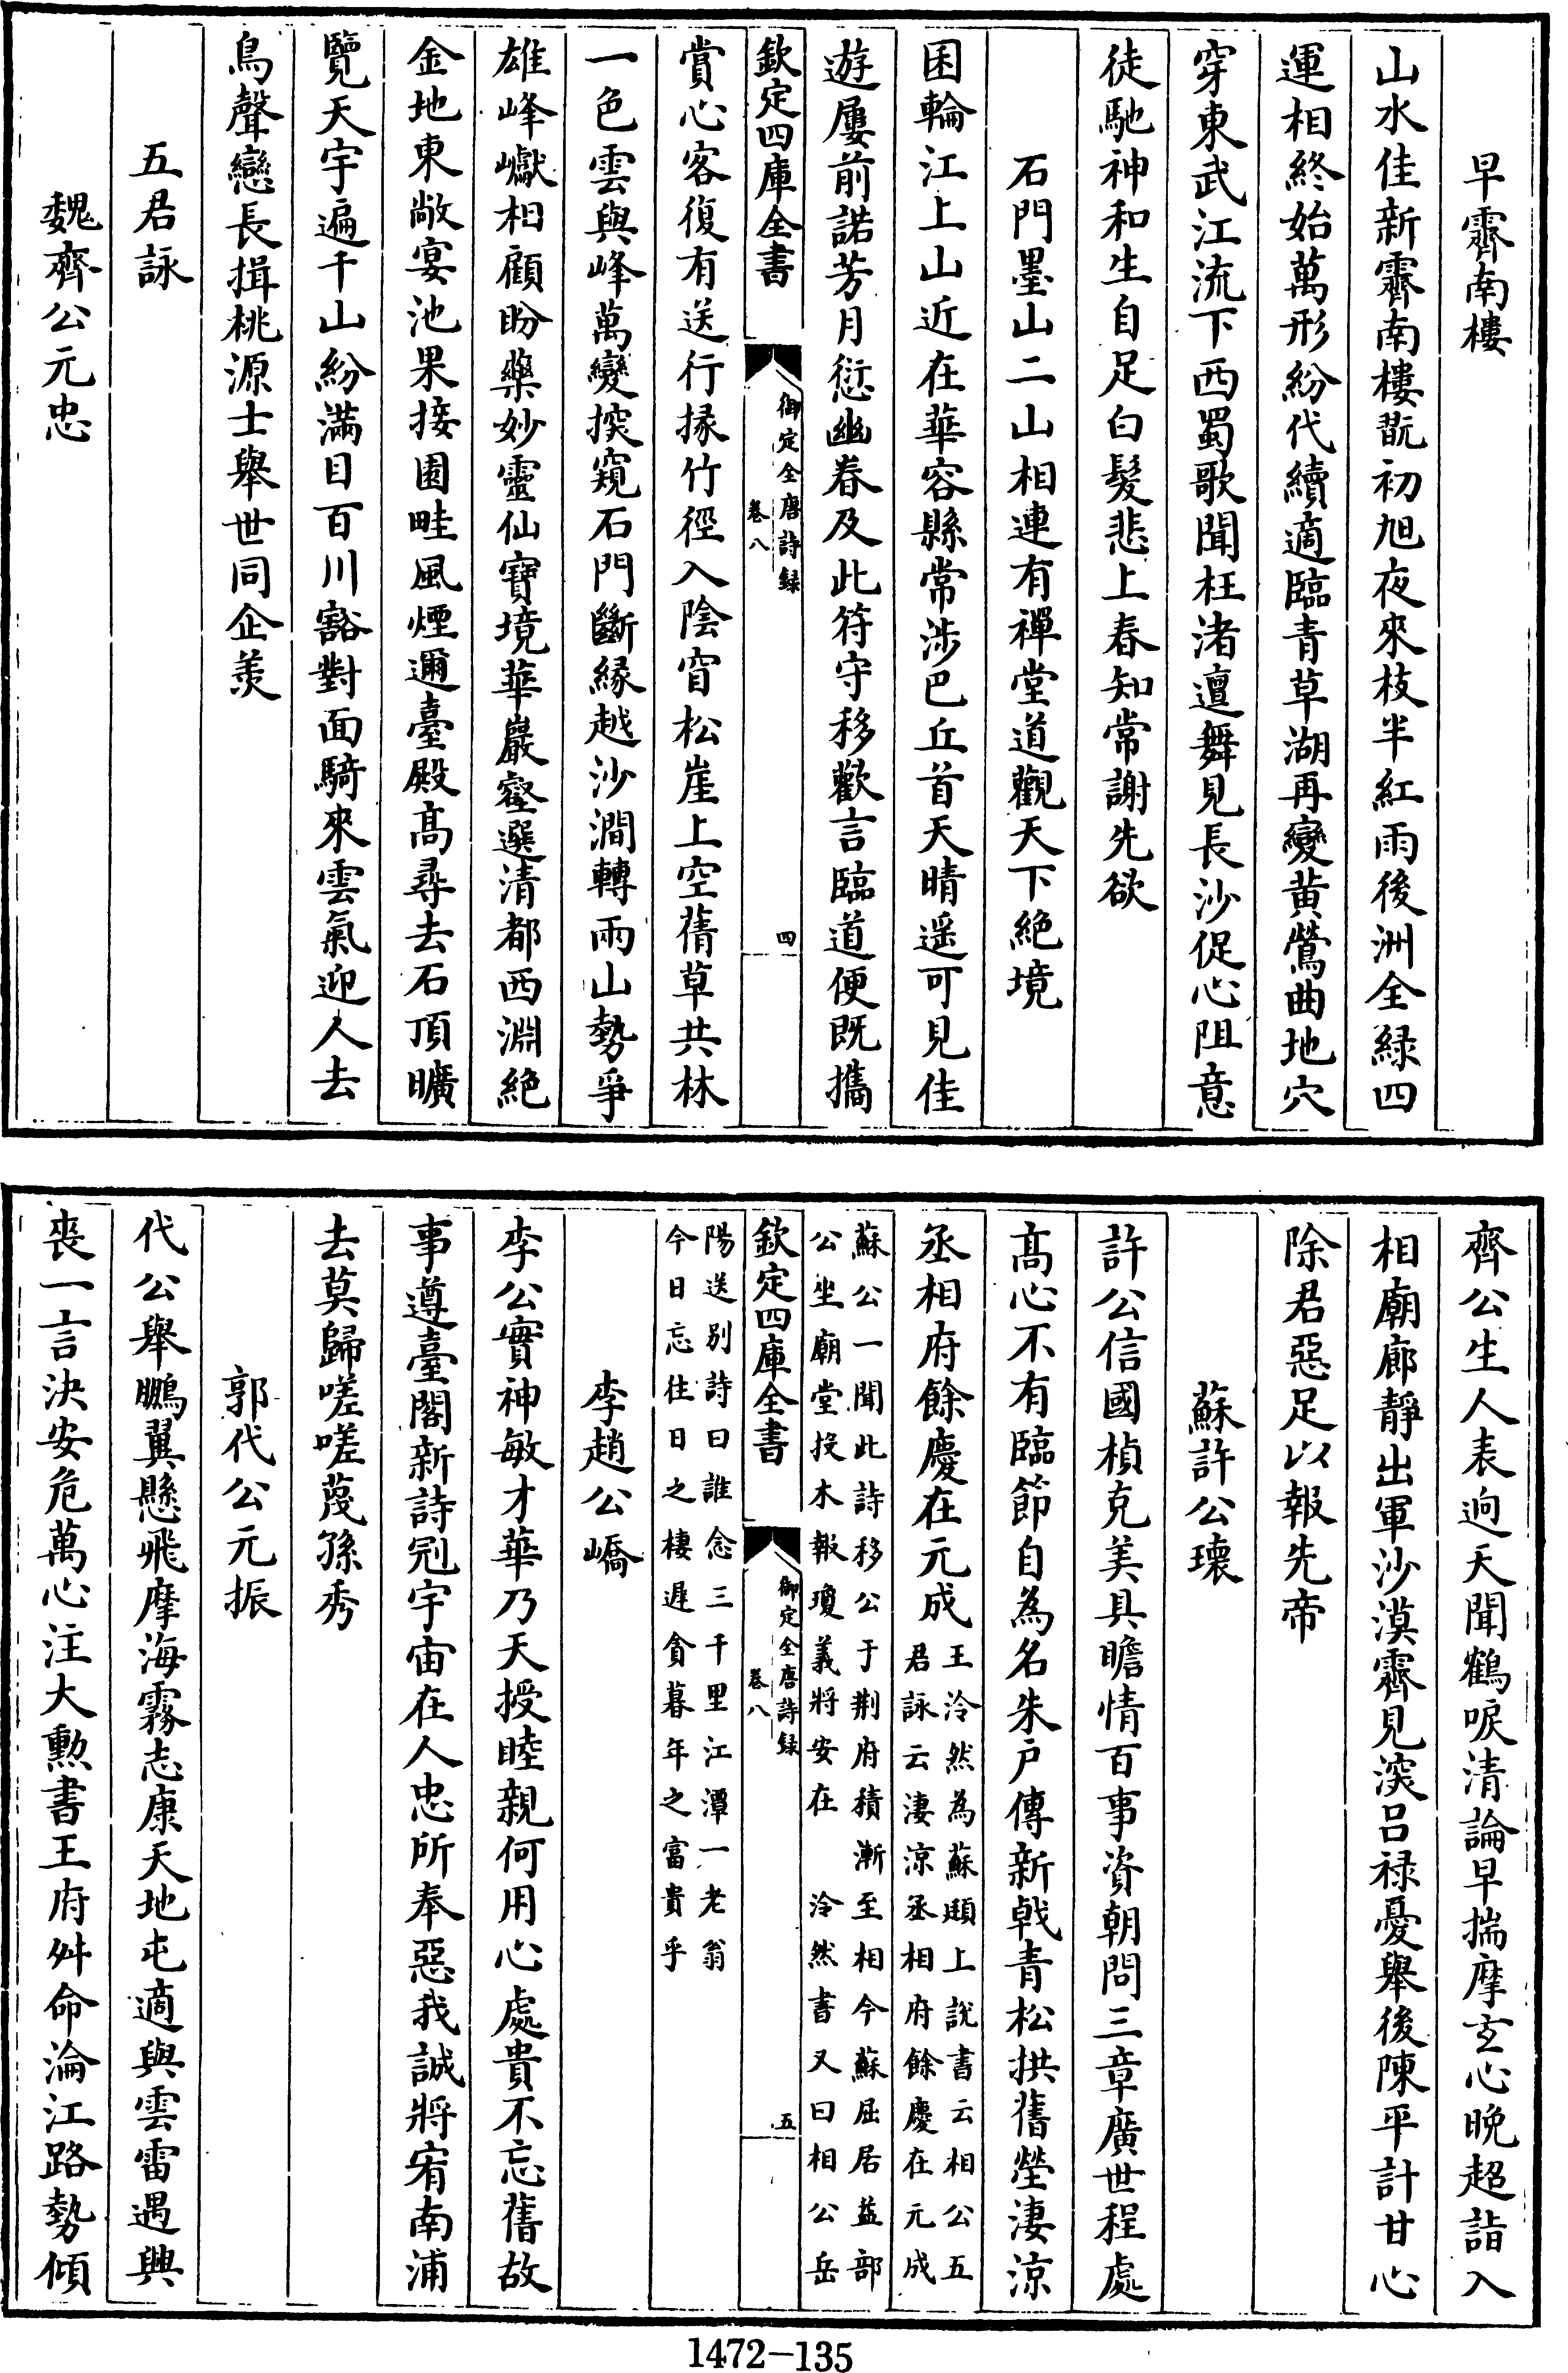 早霽南樓
山水佳新霽南樓翫初旭夜來枝半紅雨後洲全緑四
運相終始萬形紛代續適臨青草湖再變黄鶯曲地穴
穿東武江流下西蜀歌聞枉渚邅舞見長沙促心阻意
徒馳神和生自足白髮悲上春知常謝先欲
石門墨山二山相連有禪堂道觀天下絶境
困輪江上山近在華容縣常涉巴丘首天晴遥可見佳
遊屢前諾芳月愆幽眷及此符守移歡言臨道便既攜
欽定四庫全書
御定全唐詩録
卷八
四
賞心客復有送行掾竹徑入陰窅松崖上空蒨草共林
一色雲與峰萬變探窺石門斷緣越沙澗轉兩山勢爭
雄峰巘相顧盼藥妙靈仙寶境華巖壑選清都西淵絶
金地東敞宴池果接園畦風煙邇臺殿高尋去石頂曠
覽天宇遍千山紛滿目百川豁對面騎來雲氣迎人去
鳥聲戀長揖桃源士舉世同企羨
五君詠
魏齊公元忠
齊公生人表迥天聞鶴唳清論早揣摩玄心晚超詣入
相廟廊靜出軍沙漠霽見深吕禄憂舉後陳平計甘心
除君惡足以報先帝
蘇許公瓌
許公信國楨克美具瞻情百事資朝問三章廣世程處
高心不有臨節自為名朱户傳新戟青松拱舊塋淒涼
丞相府餘慶在元成
王泠然為蘇頲上説書云相公五
君詠云淒涼丞相府餘慶在元成
蘇公一聞此詩移公于荆府積漸至相今蘇屈居益部
公坐廟堂投木報瓊義將安在　泠然書又曰相公岳
欽定四庫全書
御定全唐詩録
卷八
五
陽送别詩曰誰念三千里江潭一老翁
今日忘往日之棲遲貪暮年之富貴乎
李趙公嶠
李公實神敏才華乃天授睦親何用心處貴不忘舊故
事遵臺閣新詩冠宇宙在人忠所奉惡我誠將宥南浦
去莫歸嗟嗟蔑孫秀
郭代公元振
代公舉鵬翼懸飛摩海霧志康天地屯適與雲雷遇興
喪一言決安危萬心注大勲書王府舛命淪江路勢傾
1472-135